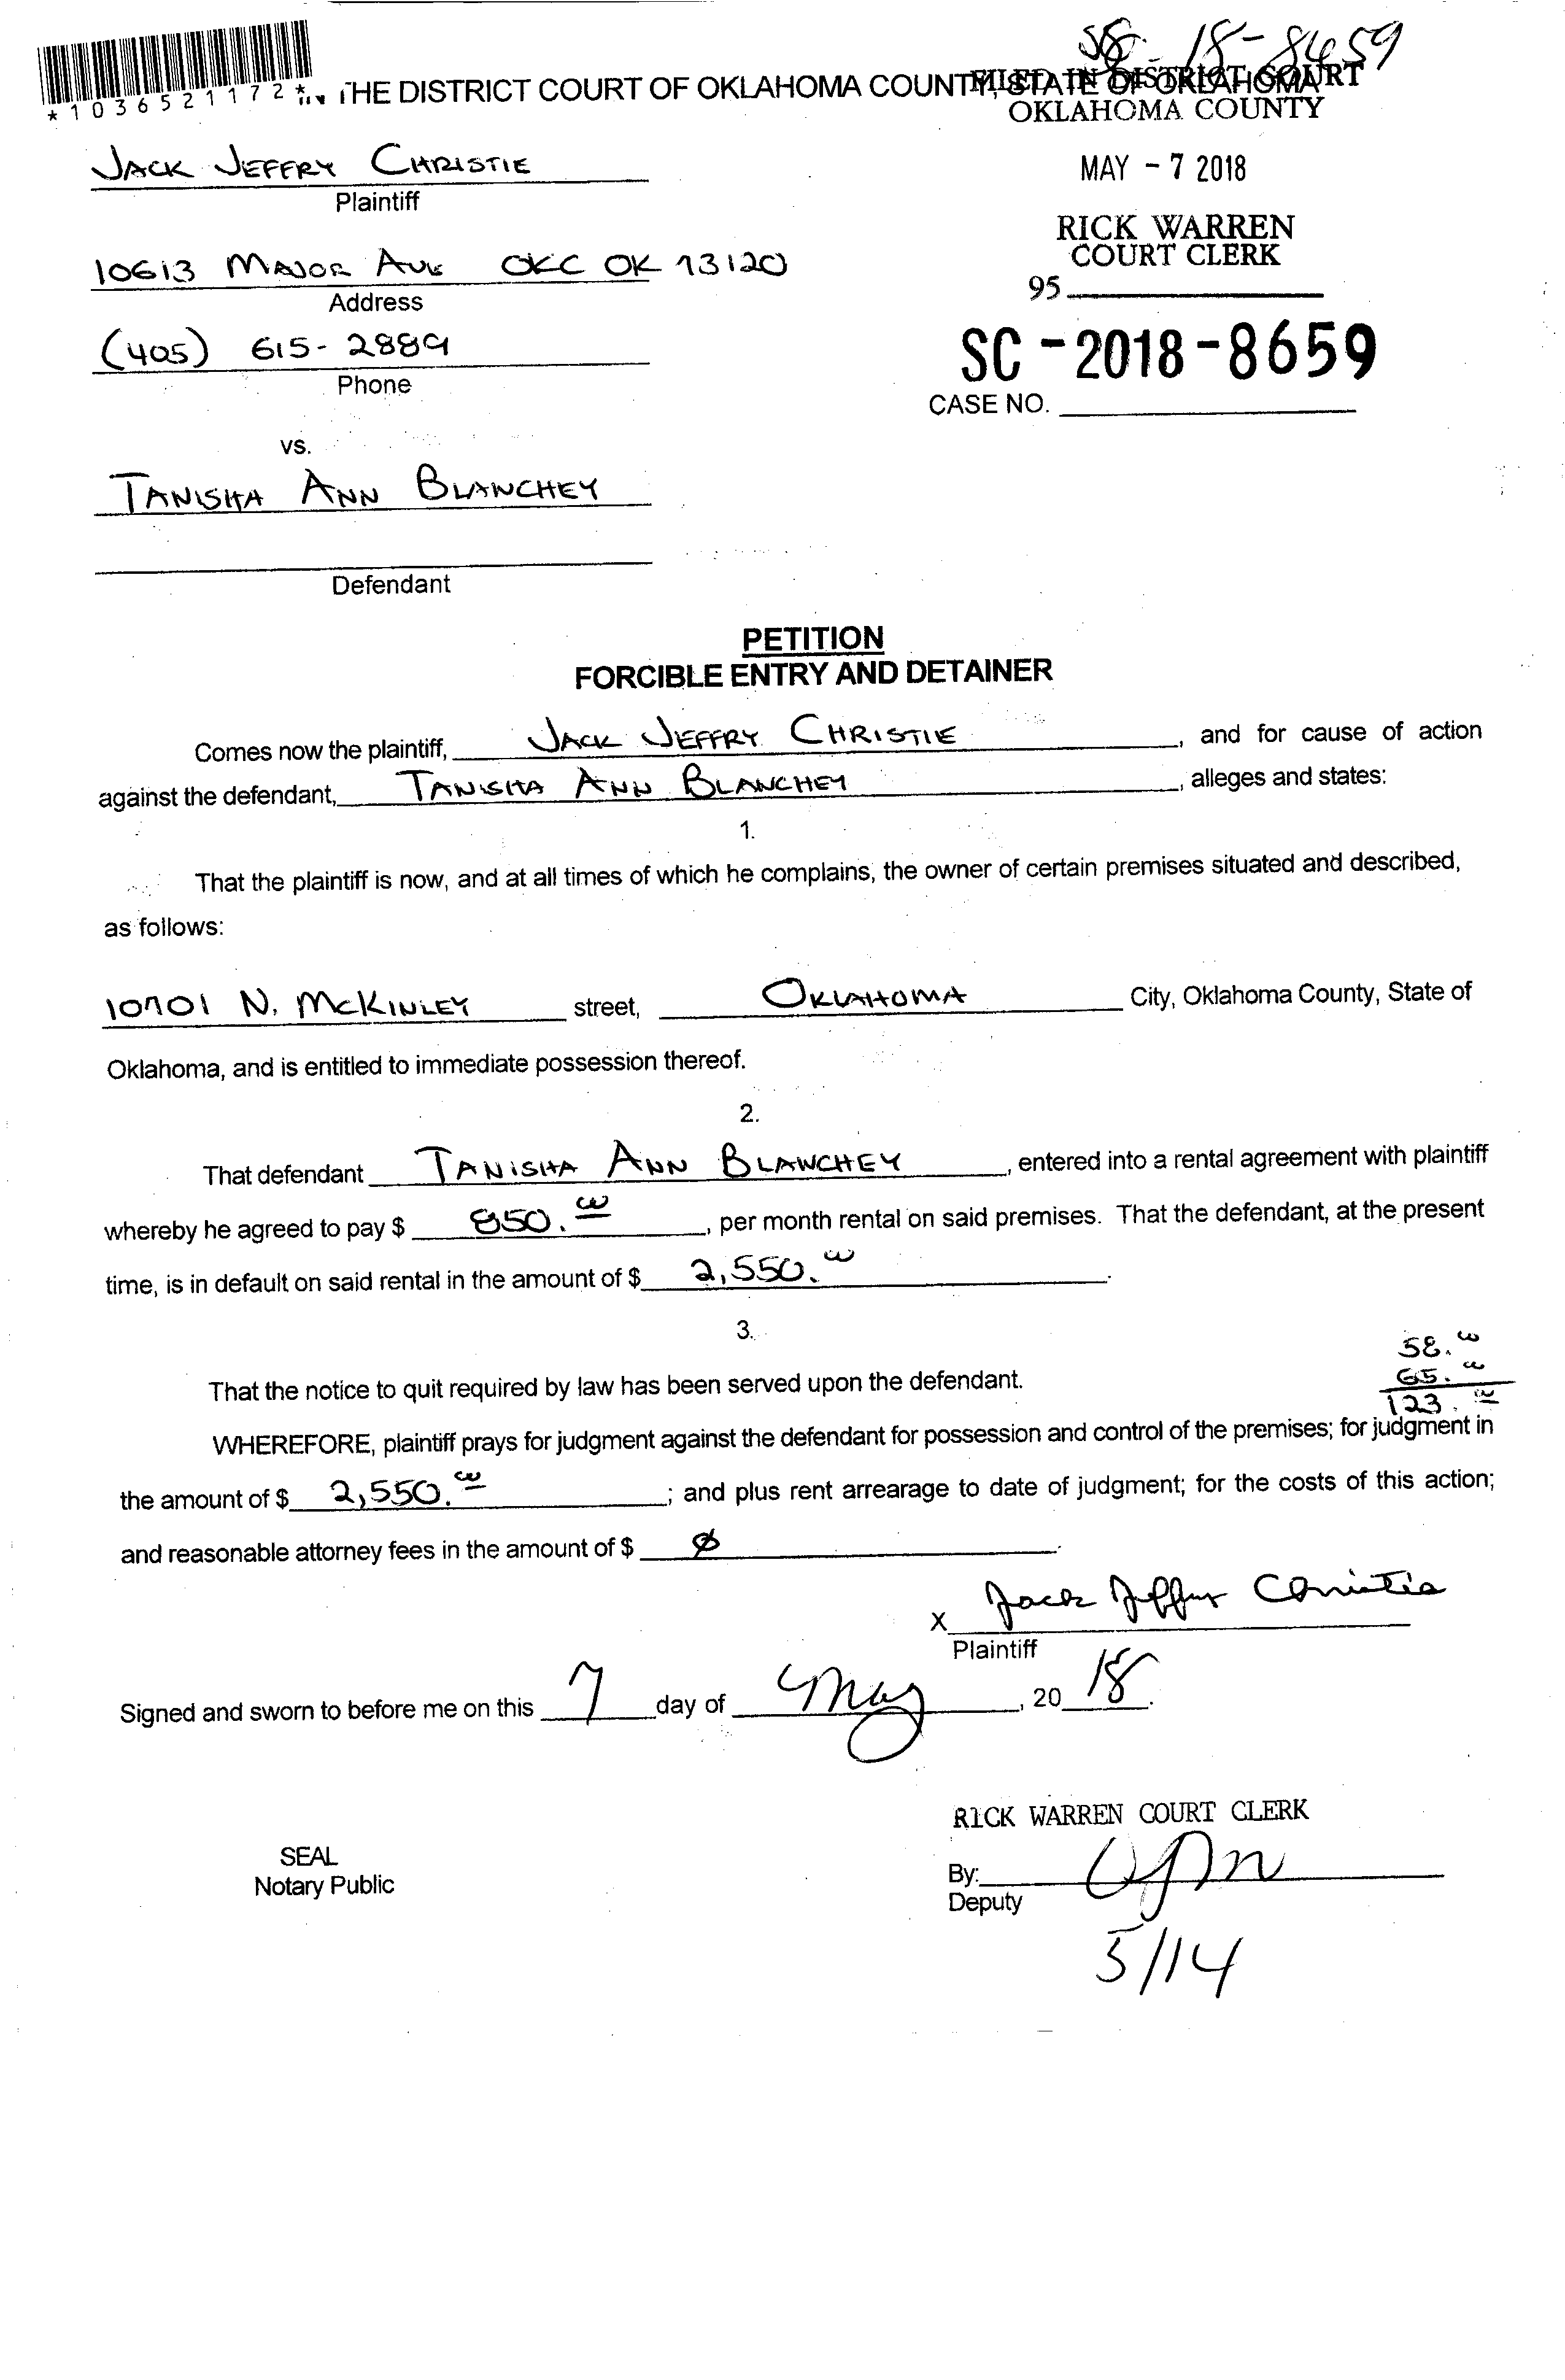 SC-18-8659
*1036521172*
IN THE DISTRICT COURT OF OKLAHOMA COUNTY, STATE OF OKLAHOMA
FILED IN DISTRICT COURT
OKLAHOMA COUNTY
JACK JEFFRY CHRISTIE
Plaintiff
MAY - 7 2018
RICK WARREN
COURT CLERK
10613 MAJOR AVE OKC OK 73120
Address
95
(405) 615-2889
Phone
SC - 2018 - 8659
CASE NO.
vs.
TANISHA ANN BLANCHEY
Defendant
PETITION
FORCIBLE ENTRY AND DETAINER
Comes now the plaintiff, JACK JEFFRY CHRISTIE, and for cause of action
against the defendant, TANISHA ANN BLANCHEY, alleges and states:
1.
That the plaintiff is now, and at all times of which he complains, the owner of certain premises situated and described,
as follows:
10701 N. MCKINLEY street, OKLAHOMA City, Oklahoma County, State of
Oklahoma, and is entitled to immediate possession thereof.
2.
That defendant TANISHA ANN BLANCHEY, entered into a rental agreement with plaintiff
whereby he agreed to pay $ 850.00, per month rental on said premises. That the defendant, at the present
time, is in default on said rental in the amount of $ 2,550.00.
3.
58.00
65.00
123.00
That the notice to quit required by law has been served upon the defendant.
WHEREFORE, plaintiff prays for judgment against the defendant for possession and control of the premises; for judgment in
the amount of $ 2,550.00; and plus rent arrearage to date of judgment; for the costs of this action;
and reasonable attorney fees in the amount of $ Ø.
X Jack Jeffry Christie
Plaintiff
Signed and sworn to before me on this 7 day of May, 20 18.
RICK WARREN COURT CLERK
SEAL
Notary Public
By:
Deputy
5/14